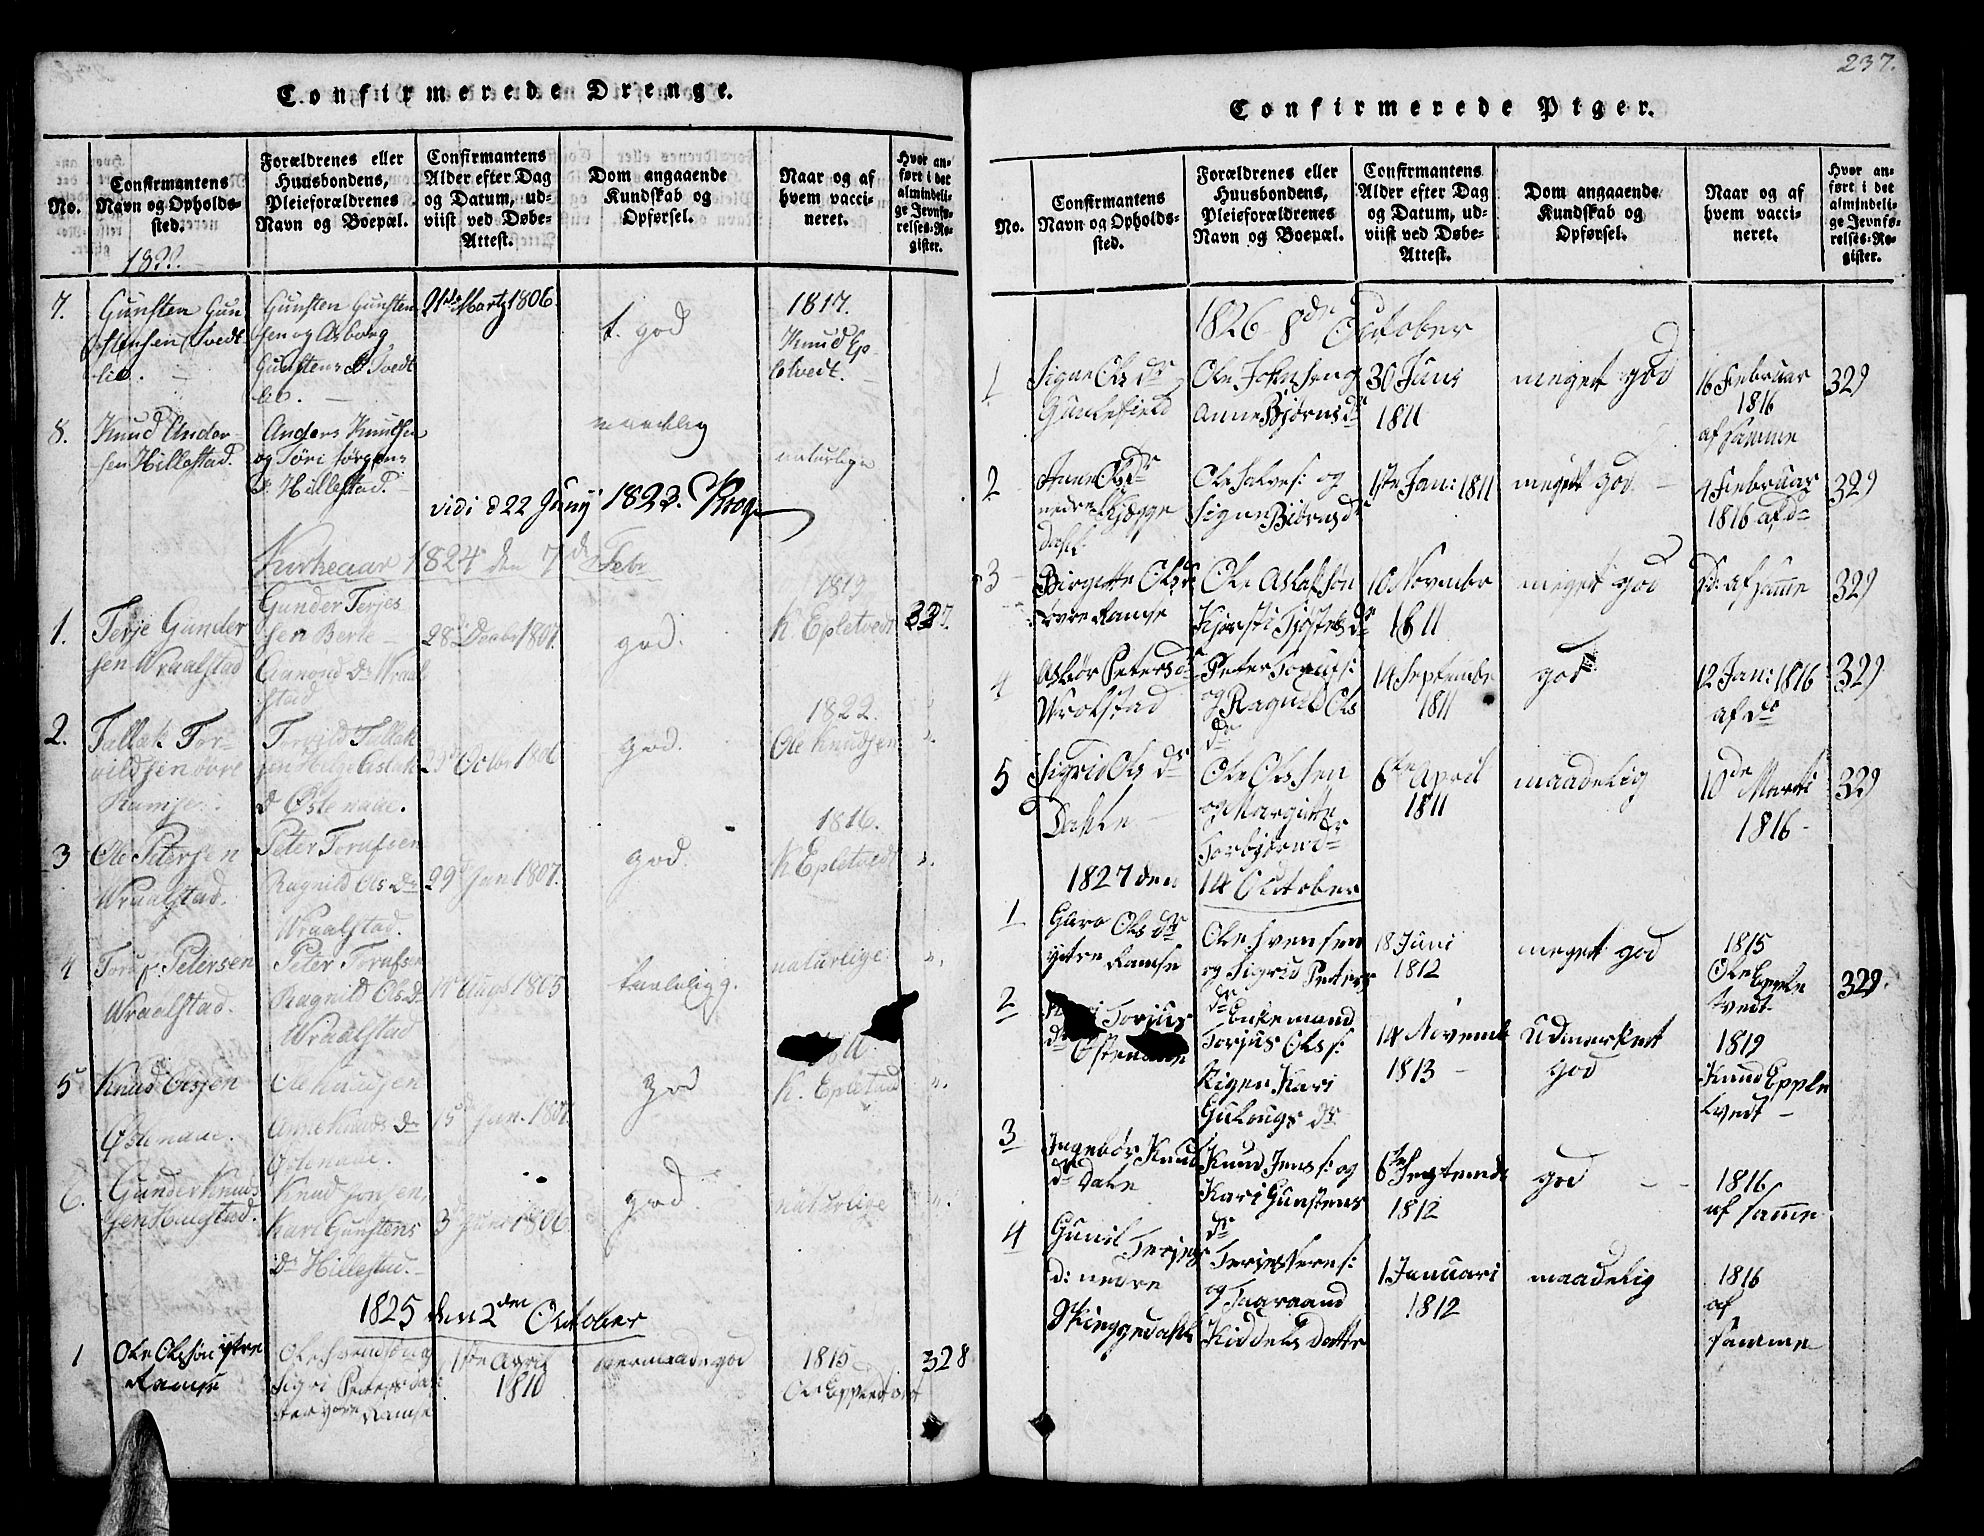 Confirmerede Drenge.
No.
Confirmantens Navn og Opholdssted.
Forældrenes eller Huusbondens, Pleieforældrenes Navn og Boepæl.
Confirmantens Alder efter Dag og Datum, udviist ved Døbe-Attest.
Dom angaaende Kundskab og Opførsel.
Naar og af hvem vaccineret.
Hvor anført i det almindelige Jevnførelses-Register.
7.
Gunsten Gun
Gunsten Gunsten
sen og Asborg
Gunstens d Tvedt
lie.
21de Martz 1806
t. god
1817.
Knud Ep-
letvedt.
8.
Knud Ander
sen Hillestad.
Anders Knudsen
og Tóri Jørgens
d. Hillestad.
maadelig
naturlige
vidi d 22 Junij 1823. Krog
Kirkeaar 1824 den 7de Febr
1.
Terje Gunder
sen Wraalstad
Gunder Terjes
sen Berte
Aanond Dr Wraal
stad
28 Decbr 1807.
god.
1819
K. Epletvedt
327.
2.
Tallak Tor-
vildsen övre
Ramse.
Torvild Tallak
sen Helge Aslak
d Östenaae.
29 Octbr 1806
god.
1822.
Ole Knudsen
3
Ole Petersen
Wraalstad.
Peter Torufsen
Ragnild Ols Dr
Wraalstad.
29 Jan 1807.
god.
1816.
K Epletvedt
4
Toruf Petersen
Wraalstad.
Peter Torufsen
Ragnild Ols Dr
Wraalstad
14 Augs 1805
taalelig.
naturlige
5
Knud Olsen
Östenaae.
Ole Knudsen
Anne Knuds Dr
Östenaae.
15 Jan. 1807
god
K. Epletved
6.
Gunder Knuds
sen Hillestad.
Knud Jonsen
Kari Gunstens
Dr Hillestad.
3 Juni 1806
god
naturlige
1825 den 2den October
1
Ole Olssön ytre
Ramse
Ole Svenssön og
Sigri Peters dat
ter øvre Ramse
1ste April
1810
overmaade god
1815
Ole Eppletvedt
328
237.
Confirmerede Piger.
No.
Confirmantens Navn og Opholdssted.
Forældrenes eller Huusbondens, Pleieforældrenes Navn og Boepæl.
Confirmantens Alder efter Dag og Datum, udviist ved Døbe-Attest.
Dom angaaende Kundskab og Opførsel.
Naar og af hvem vaccineret.
Hvor anført i det almindelige Jevnførelses-Register.
1826 8de October
1
Signe Ols dr
Ole Johnsen og
Anne Bjørns dr
30 Juni
1811
meget god
16 Februar
1816
af samme
329
2
Anne Ols dr
nedre Skjegge
dahl
Ole Salves: og
Signe Biørns dr
1ste Jan: 1811
meget god
4 Februar
1816 af do
329
3
Birgitte Ols dr
øvre Ramse
Ole Aslakssøn
Kjersti Tjostels dr
16 November
1811
meget god
Do: af samme
329
4
Asbør Peters dr
Urolstad
Peter Torufs:
og Ragnild Ols
dr
14 September
1811
god
12 Jan: 1816
af do
329
5
Sigrid Ols dr
Dahle
Ole Olssen
og Margitte
Torbjørnsdr
6te April
1811
maadelig
10de Marti
1816
329
1827 den 14 October
1
Guro Ols dr
ytre Ramse
Ole Svensen
og Sigrid Peters
dr
18 Juni
1812
meget god
1815
Ole Epple
tvedt
329.
2
Torjus
dr Østenaae
Enkemand
Torjus Ols s:
Aigen Kari
Gulougs dr
14 Novemb
1813
Udmerket
god
1819
Knud Epple
tvedt
3
Ingebór Knud
dr Dale
Knud Jens s: og
Kari Gunstens
dr
6te Septemb
1812
god
1816
af samme
4
Gunil Terjes
d: nedre
Skieggedahl
og Taaraand
Kiddels datter
1 Januari
1812
maadelig
1816
af
samme